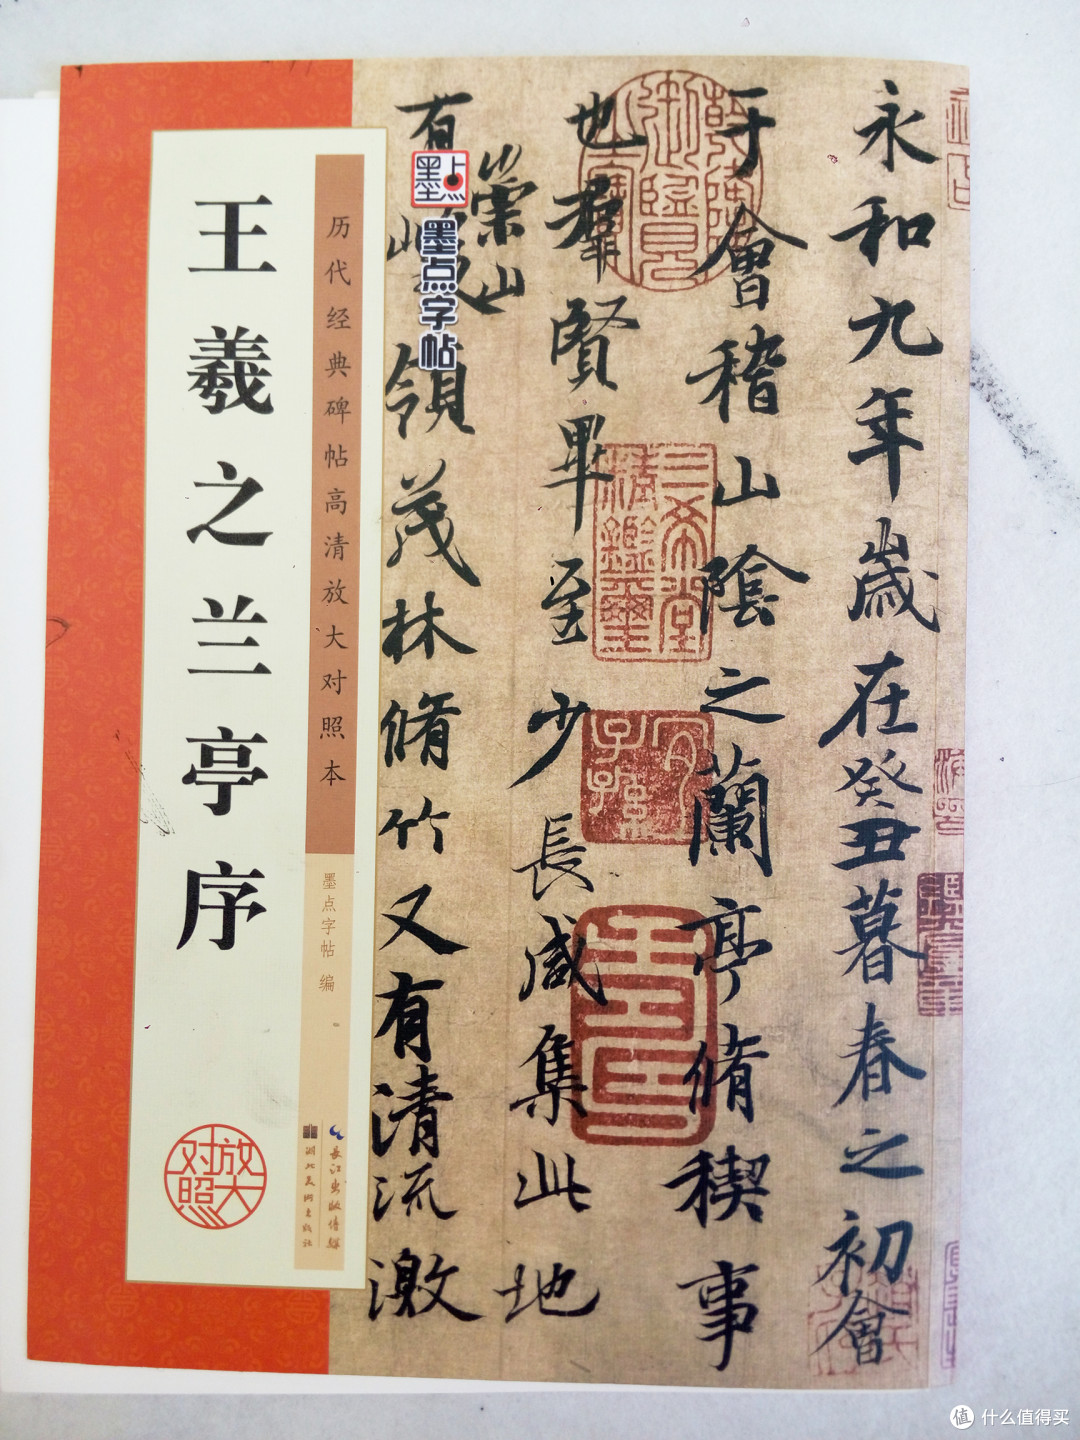 王羲之兰亭序
历代经典碑帖高清放大对照本
墨点字帖 编
放大对照
长江出版传媒
湖北美术出版社
墨点
墨点字帖
永和九年歲在癸丑暮春之初會
于會稽山陰之蘭亭脩稧事
也群賢畢至少長咸集此地
有崇山峻領茂林脩竹又有清流激
三希堂精鑑璽
宜子孫
值 什么值得买